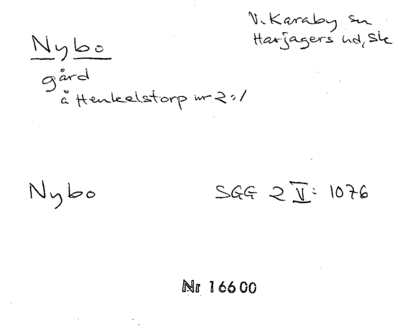 Nybo
V. Karaby sn
Harjagers hd, Sk
gård
å Henkelstorp nr 2:1
Nybo SGG 2 V: 1076
Nr 16600